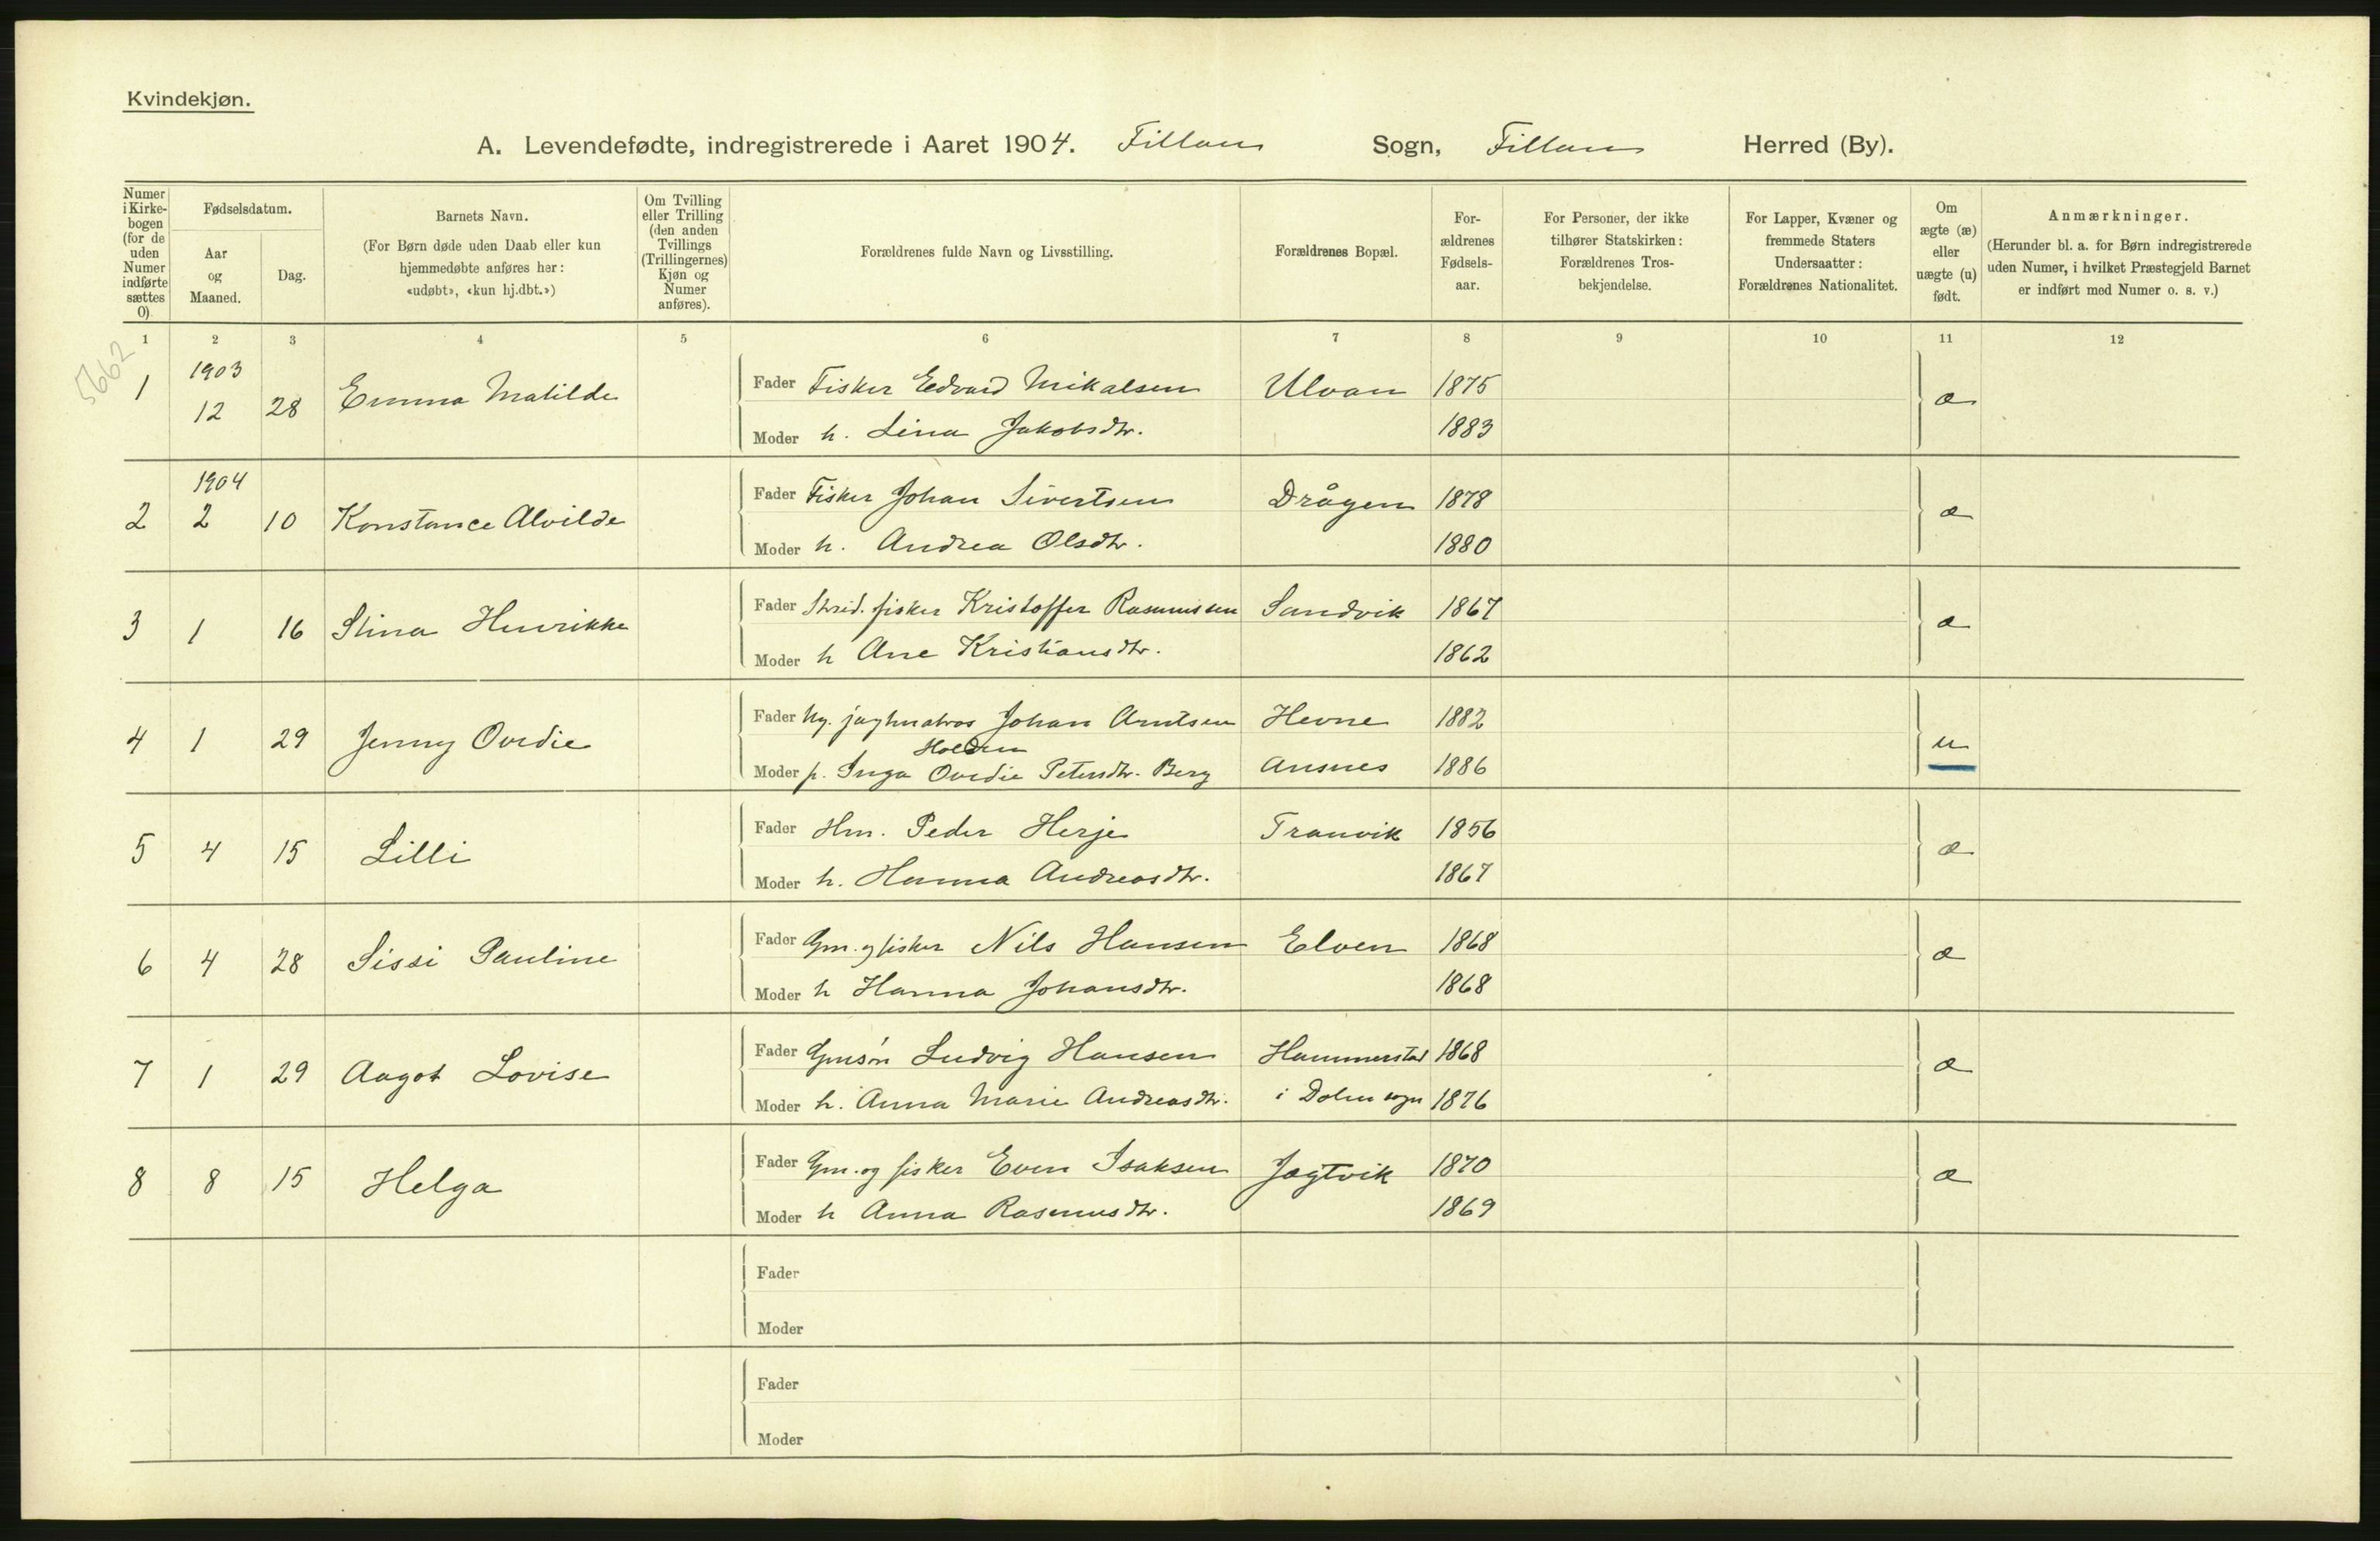 Kvindekjøn.
A. Levendefødte, indregistrerede i Aaret 1904. Fillan Sogn, Fillan Herred (By).
Numer i Kirkebogen (for de uden Numer indførte sættes 0).
Fødselsdatum.
Aar og Maaned.
Dag.
Barnets Navn.
(For Børn døde uden Daab eller kun hjemmedøbte anføres her: «udøbt», «kun hj.dbt.»)
Om Tvilling eller Trilling (den anden Tvillings (Trillingernes) Kjøn og Numer anføres).
Forældrenes fulde Navn og Livsstilling.
Forældrenes Bopæl.
Forældrenes Fødselsaar.
For Personer, der ikke tilhører Statskirken: Forældrenes Trosbekjendelse.
For Lapper, Kvæner og fremmede Staters Undersaatter: Forældrenes Nationalitet.
Om ægte (æ) eller uægte (u) født.
Anmærkninger.
(Herunder bl. a. for Børn indregistrerede uden Numer, i hvilket Præstegjeld Barnet er indført med Numer o. s. v.)
1 2 3 4 5 6 7 8 9 10 11 12
5662
1903
1 12 28 Emma Matilde Fader Fisker Edvard Mikalsen Ulvan 1875 æ
Moder h. Lina Jakobsdtr. 1883
1904
2 2 10 Konstance Alvilde Fader Fisker Johan Sivertsen Drågen 1878 æ
Moder h. Andrea Olsdtr. 1880
3 1 16 Stina Henrikke Fader Strid. fisker Kristoffer Rasmussen Sandvik 1867 æ
Moder h Ane Kristiansdtr. 1862
4 1 29 Jenny Ovedie Fader Ug. jagtmatros Johan Arntsen Hevne 1882 u
Holden
Moder p. Inga Ovedie Petersdtr. Berg Ansnes 1886
5 4 15 Lilli Fader Hm. Peder Herje Tranvik 1856 æ
Moder h. Hanna Andreasdtr. 1867
6 4 28 Sissi Pauline Fader Gm. og fisker Nils Hansen Elven 1868 æ
Moder h Hanna Johansdtr. 1868
7 1 29 Aagot Lovise Fader Gmsøn Ludvig Hansen Hammerstad 1868 æ
Moder h. Anna Marie Andreasdtr. i Dolm sogn 1876
8 8 15 Helga Fader Gm. og fisker Even Isaksen Jøgtvik 1870 æ
Moder h Anna Rasmusdtr. 1869
Fader
Moder
Fader
Moder